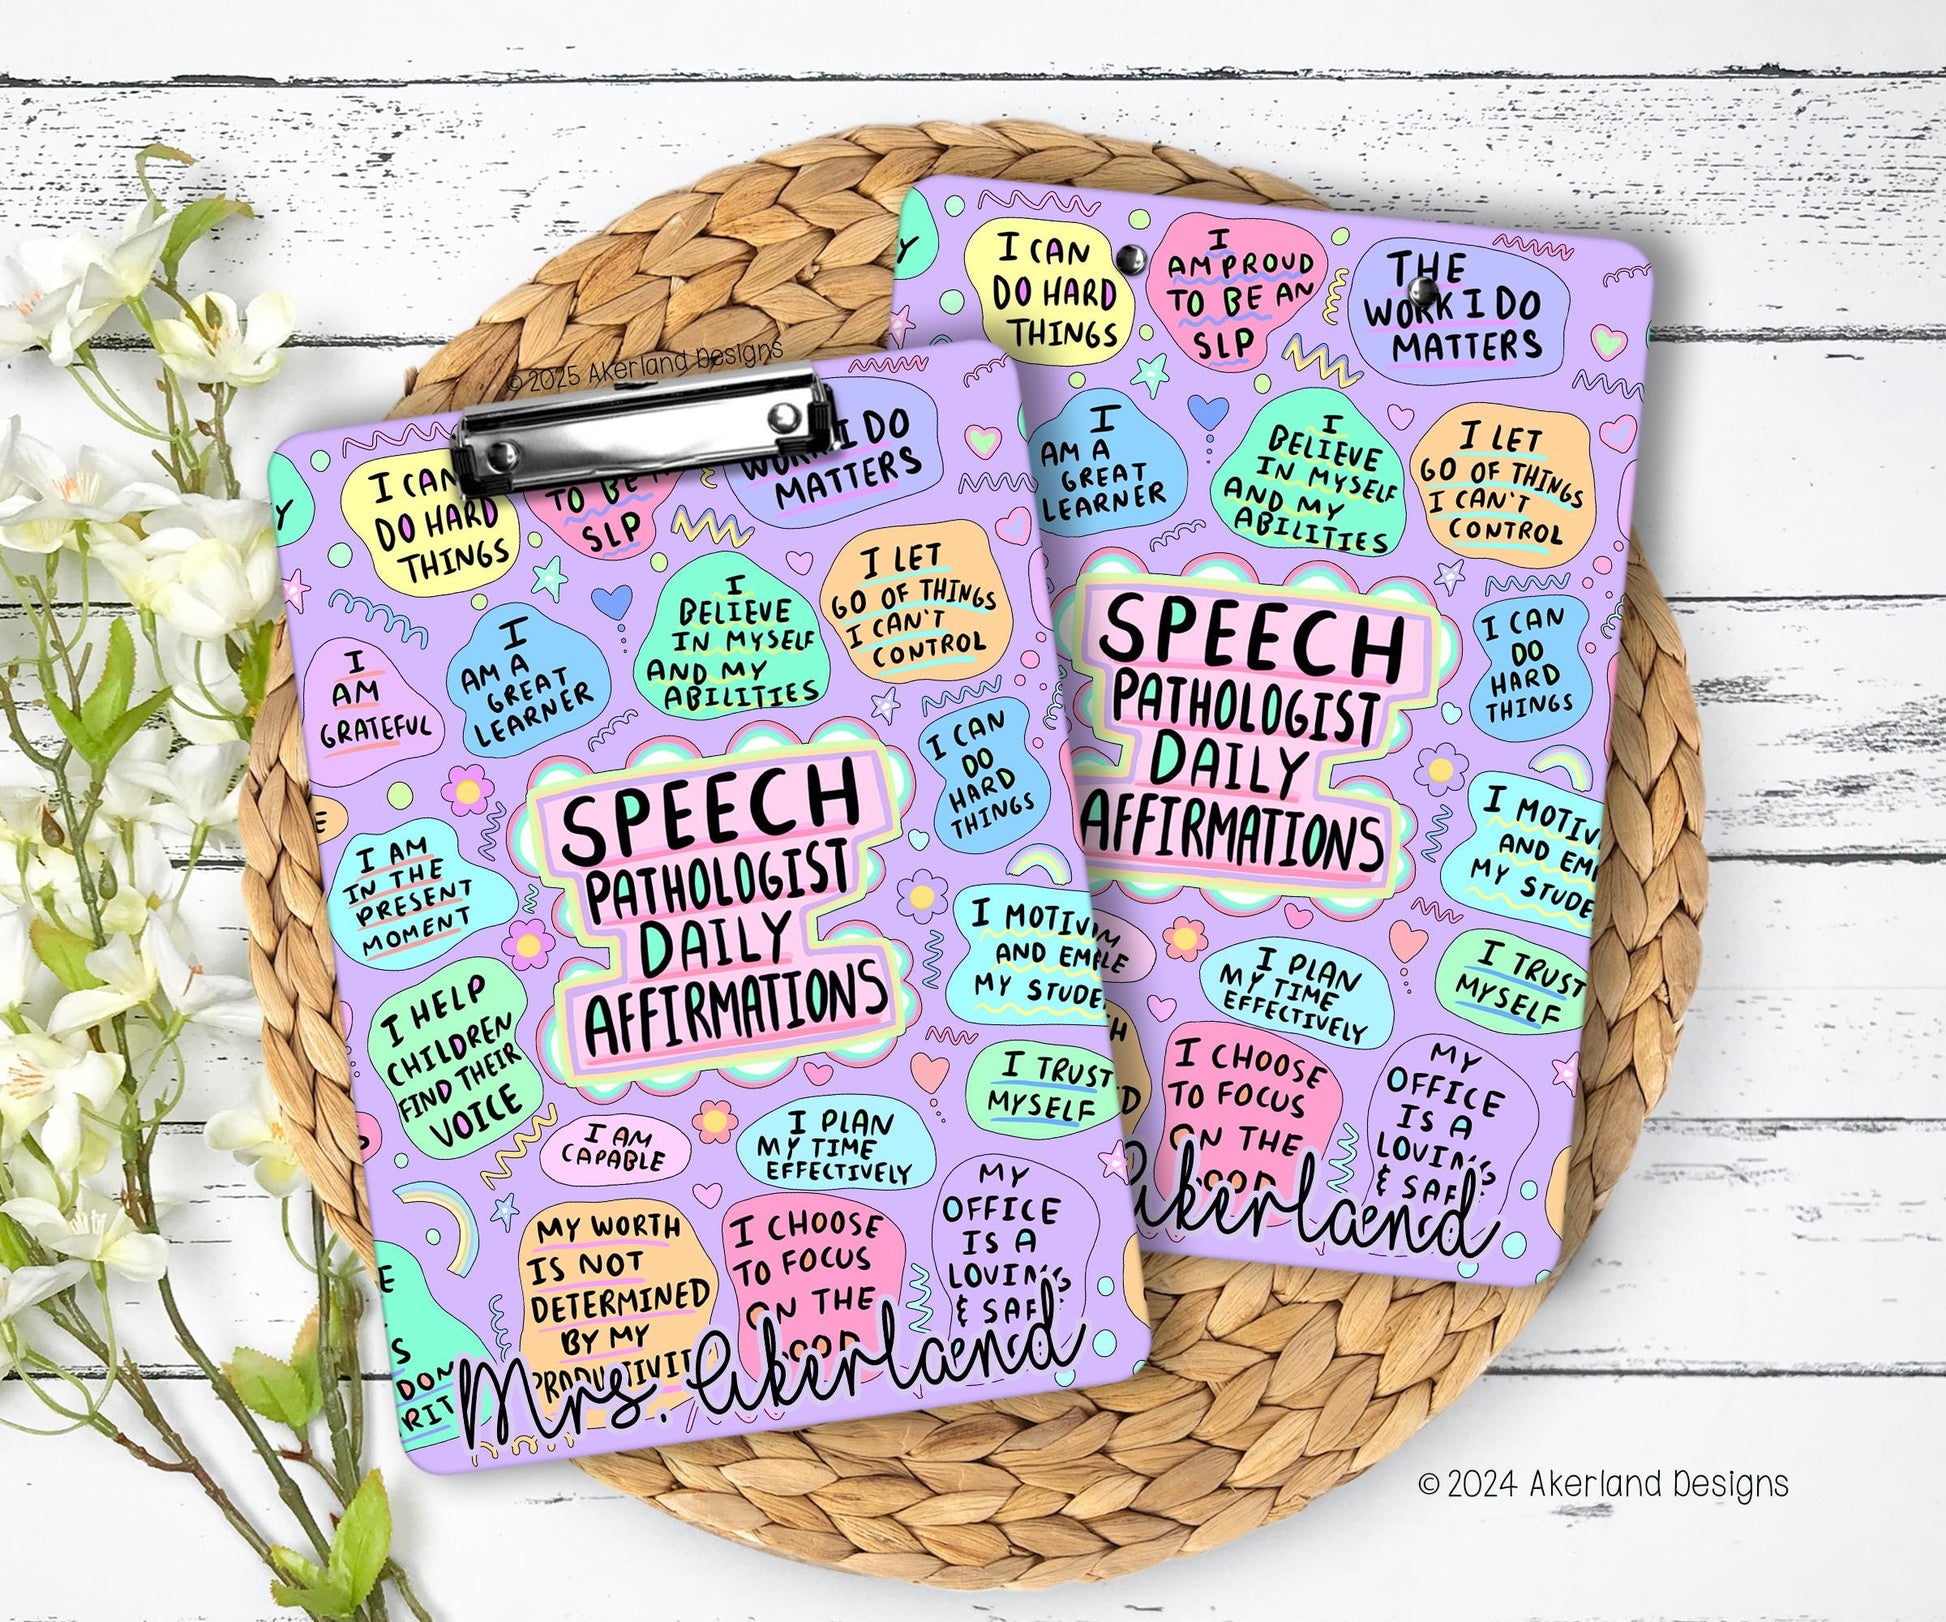 © 2025 Akerland Designs
I CAN
DO HARD
THINGS
TO BE
SLP
I DO
MATTERS
I
AM A
GREAT
LEARNER
I
BELIEVE
IN MYSELF
AND MY
ABILITIES
I LET
GO OF THINGS
I CAN'T
CONTROL
I
AM
GRATEFUL
I CAN
DO
HARD
THINGS
SPEECH
PATHOLOGIST
DAILY
AFFIRMATIONS
I AM
IN THE
PRESENT
MOMENT
I MOTIV
AND EMP
MY STUDE
I HELP
CHILDREN
FIND THEIR
VOICE
I TRUST
MYSELF
I AM
CAPABLE
I PLAN
MY TIME
EFFECTIVELY
MY WORTH
IS NOT
DETERMINED
BY MY
I CHOOSE
TO FOCUS
ON THE
MY
OFFICE
IS A
LOVING
& SAF
Mrs. Akerland
I CAN
DO HARD
THINGS
I
AM PROUD
TO BE AN
SLP
THE
WORK I DO
MATTERS
I
AM A
GREAT
LEARNER
I
BELIEVE
IN MYSELF
AND MY
ABILITIES
I LET
GO OF THINGS
I CAN'T
CONTROL
SPEECH
PATHOLOGIST
DAILY
AFFIRMATIONS
I CAN
DO
HARD
THINGS
I MOTIV
AND EMP
MY STUDE
I PLAN
MY TIME
EFFECTIVELY
I TRUST
MYSELF
I CHOOSE
TO FOCUS
ON THE
MY
OFFICE
IS A
LOVING
& SAF
Akerland
© 2024 Akerland Designs